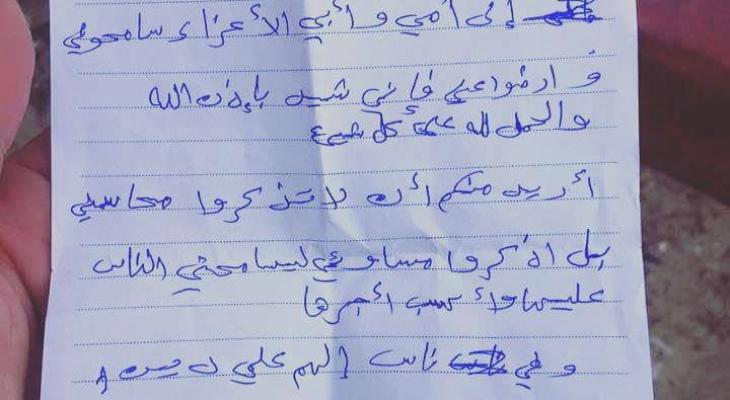 إلى أمي وأبي الأعزاء سامحوني
وارضوا عني فإني شهيد بإذن الله
والحمد لله على كل شيء
أريد منكم أن لا تذكروا محاسني
بل اذكروا مساوئي ليسامحني الناس
عليها وأكسب أجرها
وفي ناس إلهم علي